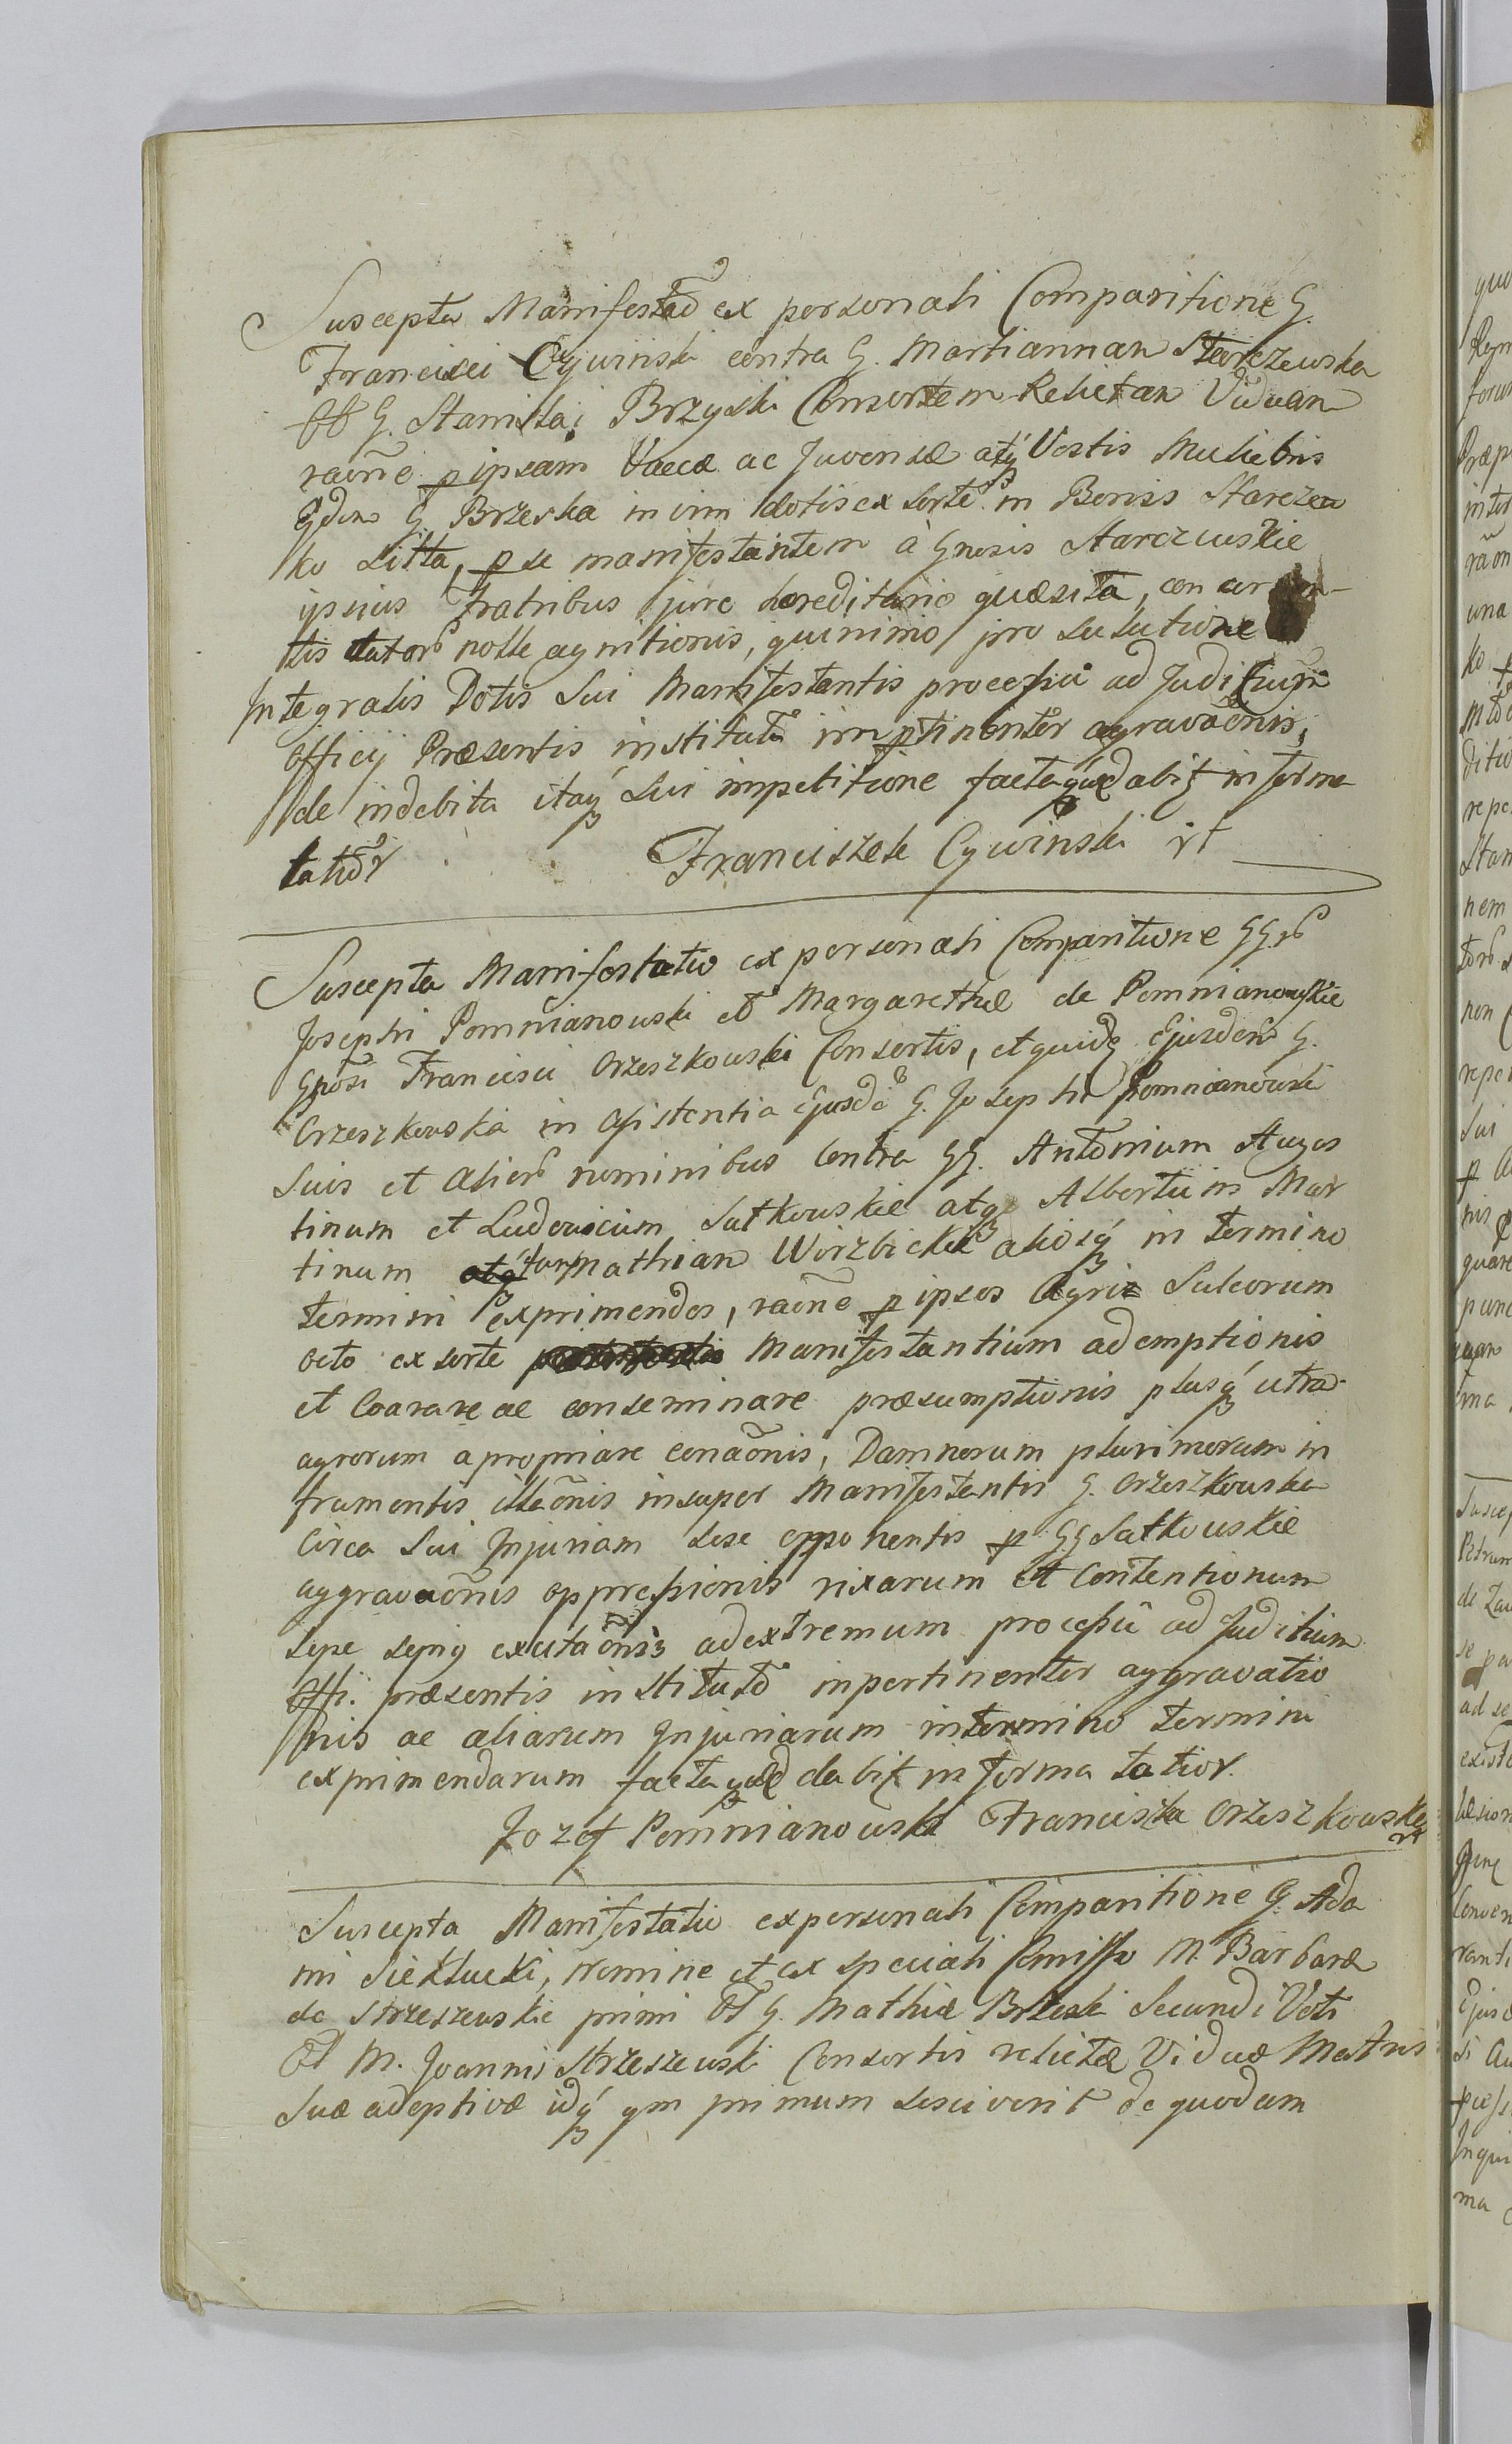 Suscepta Manifestao ex personali Comparitione G.
Francisci Cywinski contra G. Martiannan Starczewska
olt G. Stanislai Brzyski Consortem Relictan Viduan
raõne p ipsam Vaccæ ac Juvencæ atq Vestis Muliebris
Ejdem G. Brzeska in vim dotis ex sorte in Bonis Starczew
ko Sitta, p se manifestantem à Gnosis Starczewskie
ipsius Fratribus jure hæreditario quæsita, con
tis nolle agnitionis, quinimo pro solutione
Integralis Dotis Sui Manifestantis processu ad Juditium
Officij Præsentis instituto imptinenter agravaõnis,
de indebita itaq Sui impetitione facta quæ dabit in forma
latior Franciszek Cywinski rt
Suscepta Manifestatio ex personali Comparitione GG
Josephi Pomnianowski et Margarethæ de Pomnianowskie
Gnosi Francisci Orzeszkowski Consortis, et quidẽ Ejusdem G.
Orzeszkowska in Assistentia Ejusdẽ G. Josephi Pomnianowski
Suis et Alior nominibus Contra GG. Antonium Augus
tinum et Ludovicum Sutkowskie atq Albertum Mar
tinum Mathian Wirzbickie aliosq in termino
termini exprimendos, raõne p ipsos Agri Sulcorum
octo ex sorte Manifestantium ademptionis
et Coarare ac conseminare præsumptionis plusq ultra
agrorum apropriare conaõnis, Damnorum plurimorum in
frumentis illaõnis insuper Manifestantis G. Orzeszkowska
Circa Sui Injuriam sese opponentis p GG Satkowskie
aggravaõnis oppressionis rixarum et Contentionum
sepe sepiq excitaõnis ad extremum processu ad Juditium
Offi. præsentis instituto inpertinenter aggravatio
nis ac aliarum Injuriarum in termino termini
exprimendarum facta quæ dabit in forma latior.
Jozef Pomnianowski Franciszka Orzeszkowska
Suscepta Manifestatio ex personali Comparitione G. Ada
mi Siekłucki, Nomine et ex speciali Comisso M. Barbaræ
de Strzeszewskie primi olt G. Mathiæ Brzeski Secundi Voti
olt M. Joannis Strzeszewski Consortis relictæ Viduæ Matris
Suæ adoptivæ idq qm primum sesciverit de quodam